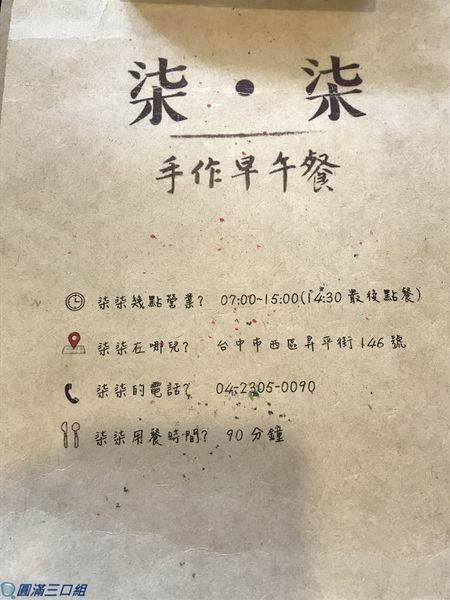 柒・柒
手作早午餐
柒柒幾點營業? 07:00~15:00(14:30 最後點餐)
柒柒在哪兒? 台中市西區昇平街146號
柒柒的電話? 04-2305-0090
柒柒用餐時間? 90分鐘
圓滿三口組